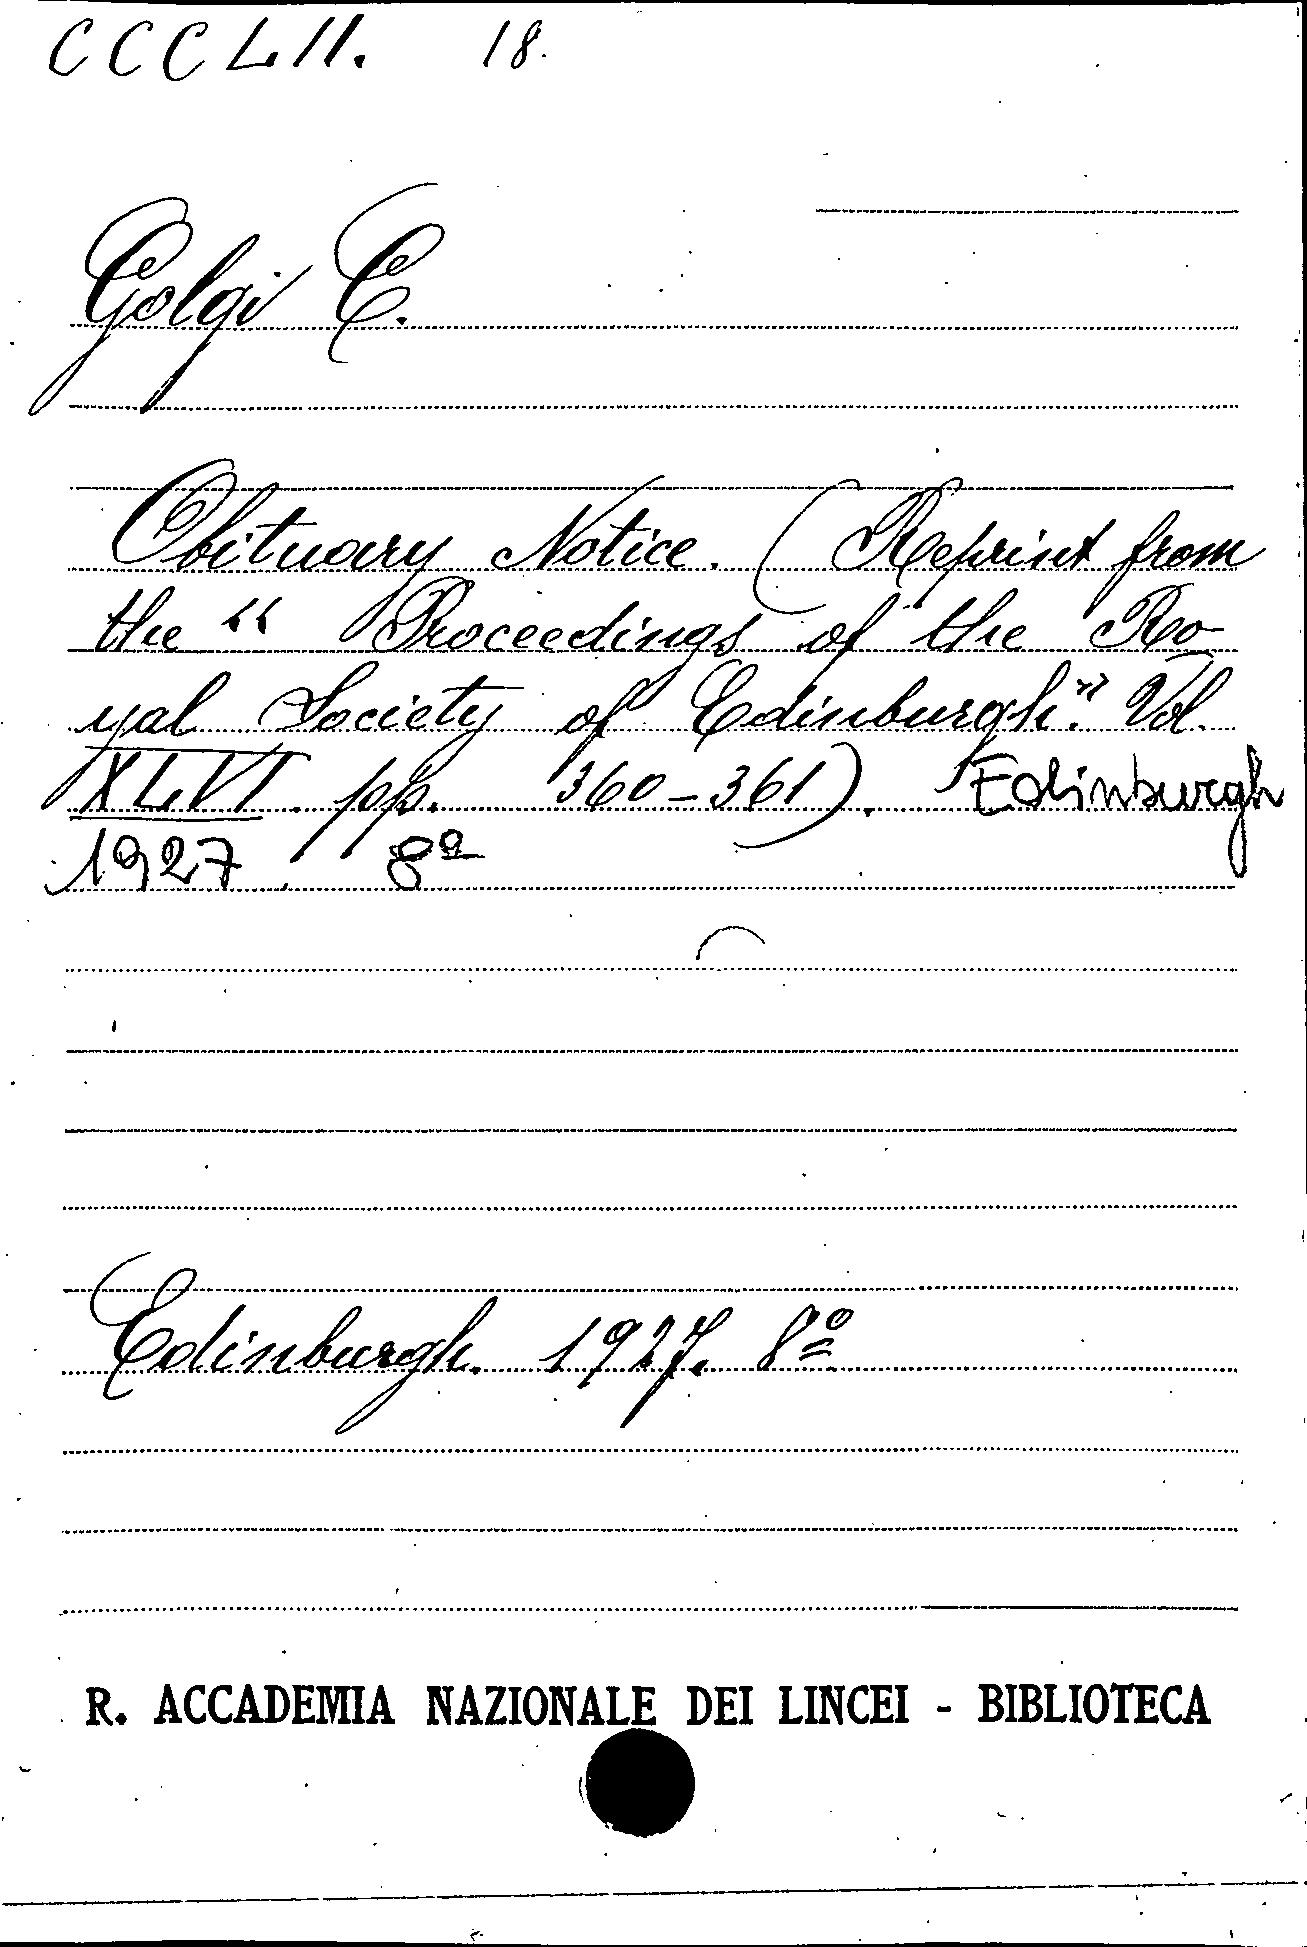 CCCLII. 18.
Golgi C.
Obituary Notice. (Reprint from
the “ Proceedings of the Ro
yal Society of Edinburgh.” Vol.
XLVI. pp. 360-361). Edinburgh
1927. 8º
Edinburgh. 1927. 8º
R. ACCADEMIA NAZIONALE DEI LINCEI - BIBLIOTECA